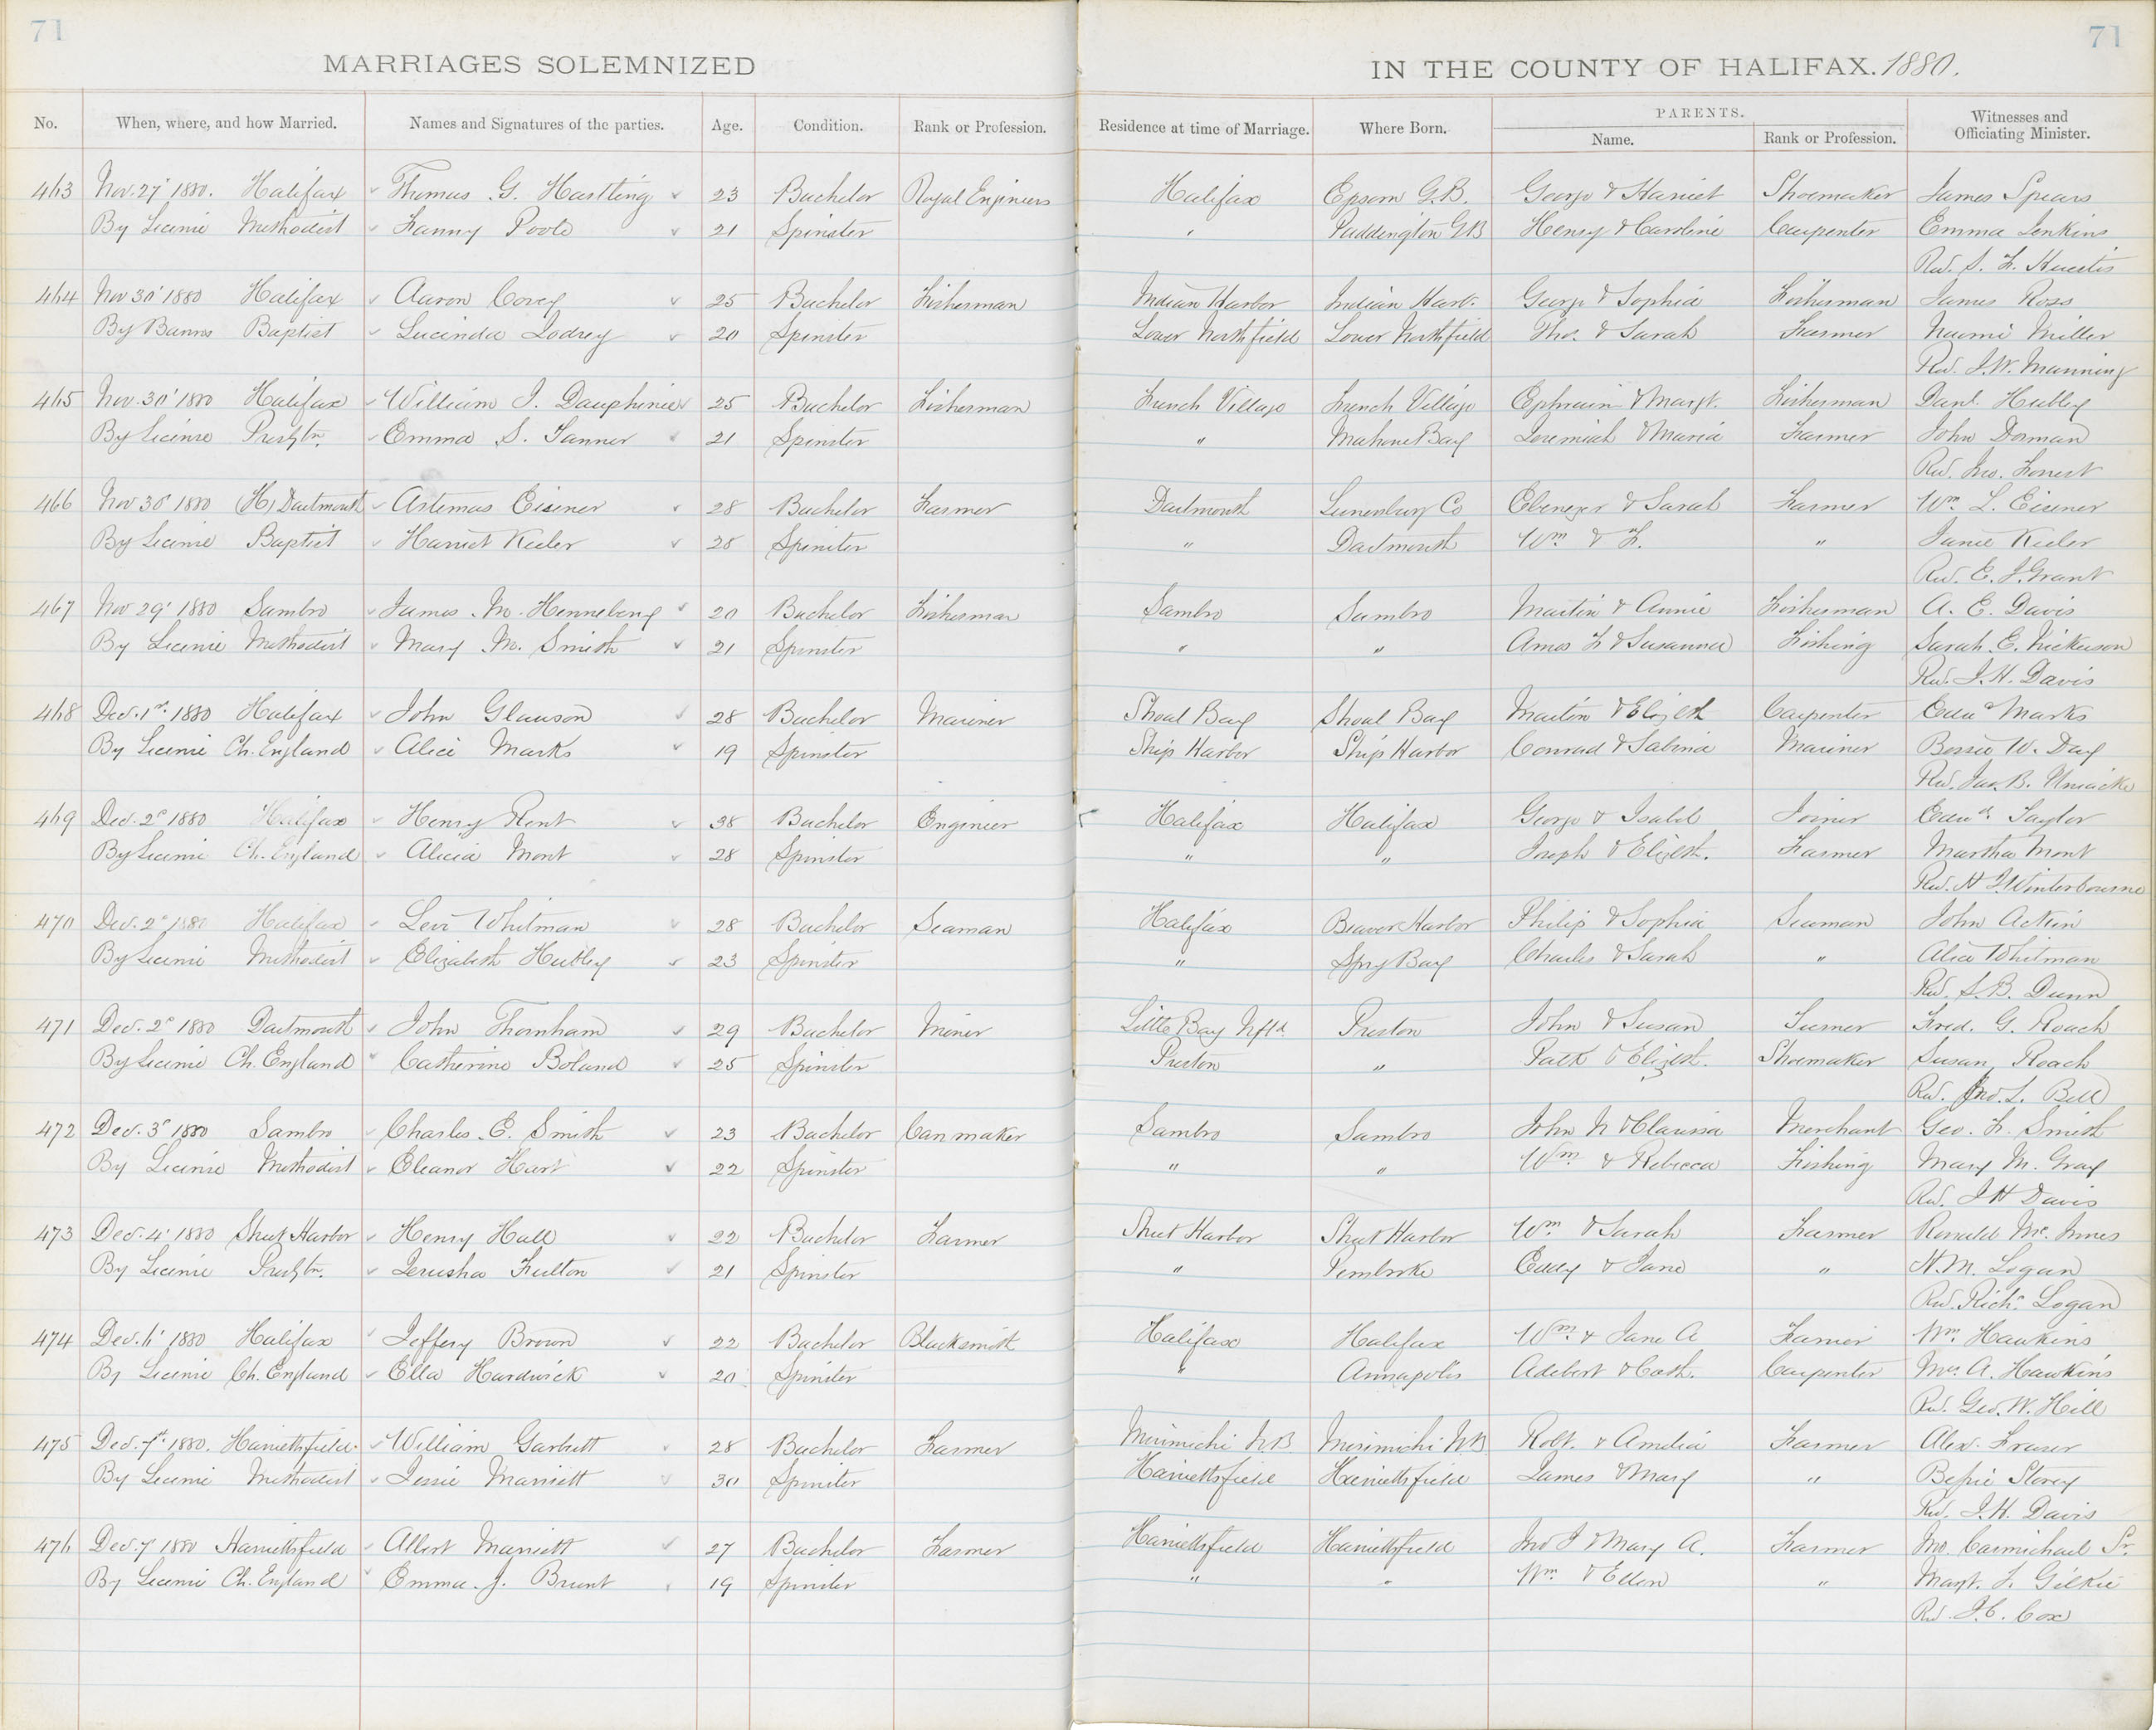 71
71
MARRIAGES SOLEMNIZED IN THE COUNTY OF HALIFAX. 1880.
No. When, where, and how Married. Names and Signatures of the parties. Age. Condition. Rank or Profession. Residence at time of Marriage. Where Born. PARENTS. Name. Rank or Profession. Witnesses and Officiating Minister.
463 Nov. 27' 1880. Halifax Thomas G. Hastling 23 Bachelor Royal Engineers Halifax Epsom G.B. George & Harriet Shoemaker James Spears
By License Methodist Fanny Poole 21 Spinster " Paddington GB Henry & Caroline Carpenter Emma Jenkins
Rev. S. F. Huestis
464 Nov 30' 1880 Halifax Aaron Covey 25 Bachelor Fisherman Indian Harbor Indian Harb. George & Sophia Fisherman James Ross
By Banns Baptist Lucinda Lodrey 20 Spinster Lower Northfield Lower Northfield Tho. & Sarah Farmer Naomi Miller
Rev. J. W. Manning
465 Nov. 30' 1880 Halifax William J. Dauphinie 25 Bachelor Fisherman French Village French Village Ephraim & Margt. Fisherman Danl. Hubley
By License Presbtn. Emma S. Tanner 21 Spinster " Mahone Bay Jeremiah & Maria Farmer John Dorman
Rev. Jno. Forrest
466 Nov 30' 1880 (H) Dartmouth Artemas Eisener 28 Bachelor Farmer Dartmouth Lunenburg Co Ebenezer & Sarah Farmer Wm. L. Eisener
By License Baptist Harriet Keeler 28 Spinster " Dartmouth Wm & F. " Janie Keeler
Rev. E. J. Grant
467 Nov 29' 1880 Sambro James M. Henneberry 20 Bachelor Fisherman Sambro Sambro Martin & Annie Fisherman A. E. Davis
By License Methodist Mary M. Smith 21 Spinster " " Amos F & Susanna Fishing Sarah E. Nickerson
Rev. J. H. Davis
468 Dec. 1st. 1880 Halifax John Glawson 28 Bachelor Mariner Shoal Bay Shoal Bay Martin & Elizbth Carpenter Edwd Marks
By License Ch. England Alice Marks 19 Spinster Ship Harbor Ship Harbor Conrad & Sabina Mariner Bessie W. Day
Rev. Jas. B. Uniacke
469 Dec. 2d 1880 Halifax Henry Kent 38 Bachelor Engineer Halifax Halifax George & Isabel Joiner Edwd. Taylor
By License Ch. England Alicia Mont 28 Spinster " " Joseph & Elizbth. Farmer Martha Mont
Rev. H J Winterbourne
470 Dec. 2d 1880 Halifax Levi Whitman 28 Bachelor Seaman Halifax Beaver Harbor Philip & Sophia Seaman John
By License Methodist Elizabeth Hubley 23 Spinster " Spry Bay Charles & Sarah " Alice Whitman
Rev. S. B. Dunn
471 Dec. 2d 1880 Dartmouth John Thornham 29 Bachelor Miner Little Bay Nfld. Preston John & Susan Fred. G. Roach
By License Ch. England Catherine Boland 25 Spinster Preston " Patk & Elizbth. Shoemaker Susan Roach
Rev. Jno. L. Bell
472 Dec. 3d 1880 Sambro Charles E. Smith 23 Bachelor Can maker Sambro Sambro John N & Clarissa Merchant Geo. F. Smith
By License Methodist Eleanor Hart 22 Spinster " " Wm & Rebecca Fishing Mary M. Gray
Rev. J H Davis
473 Dec. 4' 1880 Sheet Harbor Henry Hall 22 Bachelor Farmer Sheet Harbor Sheet Harbor Wm & Sarah Farmer Ronald Mc. Innes
By License Presbtn. Jerusha Fulton 21 Spinster " Pembroke Eddy & Jane " H. M. Logan
Rev. Richd. Logan
474 Dec. 6' 1880 Halifax Jeffery Brown 22 Bachelor Blacksmith Halifax Halifax Wm. & Jane A Farrier Wm. Hawkins
By License Ch. England Ella Hardwick 20 Spinster " Annapolis Adebert & Cath. Carpenter Mrs. A. Hawkins
Rev. Geo. W. Hill
475 Dec. 7th. 1880. Harriettsfield. William Garbutt 28 Bachelor Farmer Mirimichi N.B. Mirimichi N.B Robt. & Amelia Farmer Alex. Fraser
By License Methodist Jessie Marriott 30 Spinster Harriettsfield Harriettsfield James & Mary " Bessie Storey
Rev. J. H. Davis
476 Dec. 7 1880 Harriettsfield Albert Marriott 27 Bachelor Farmer Harriettsfield Harriettsfield Jno J & Mary A. Farmer Jno. Carmichael Sr.
By License Ch. England Emma J. Brunt 19 Spinster " " Wm. & Ellen " Margt. J. Gilkie
Rev. J. C. Cox